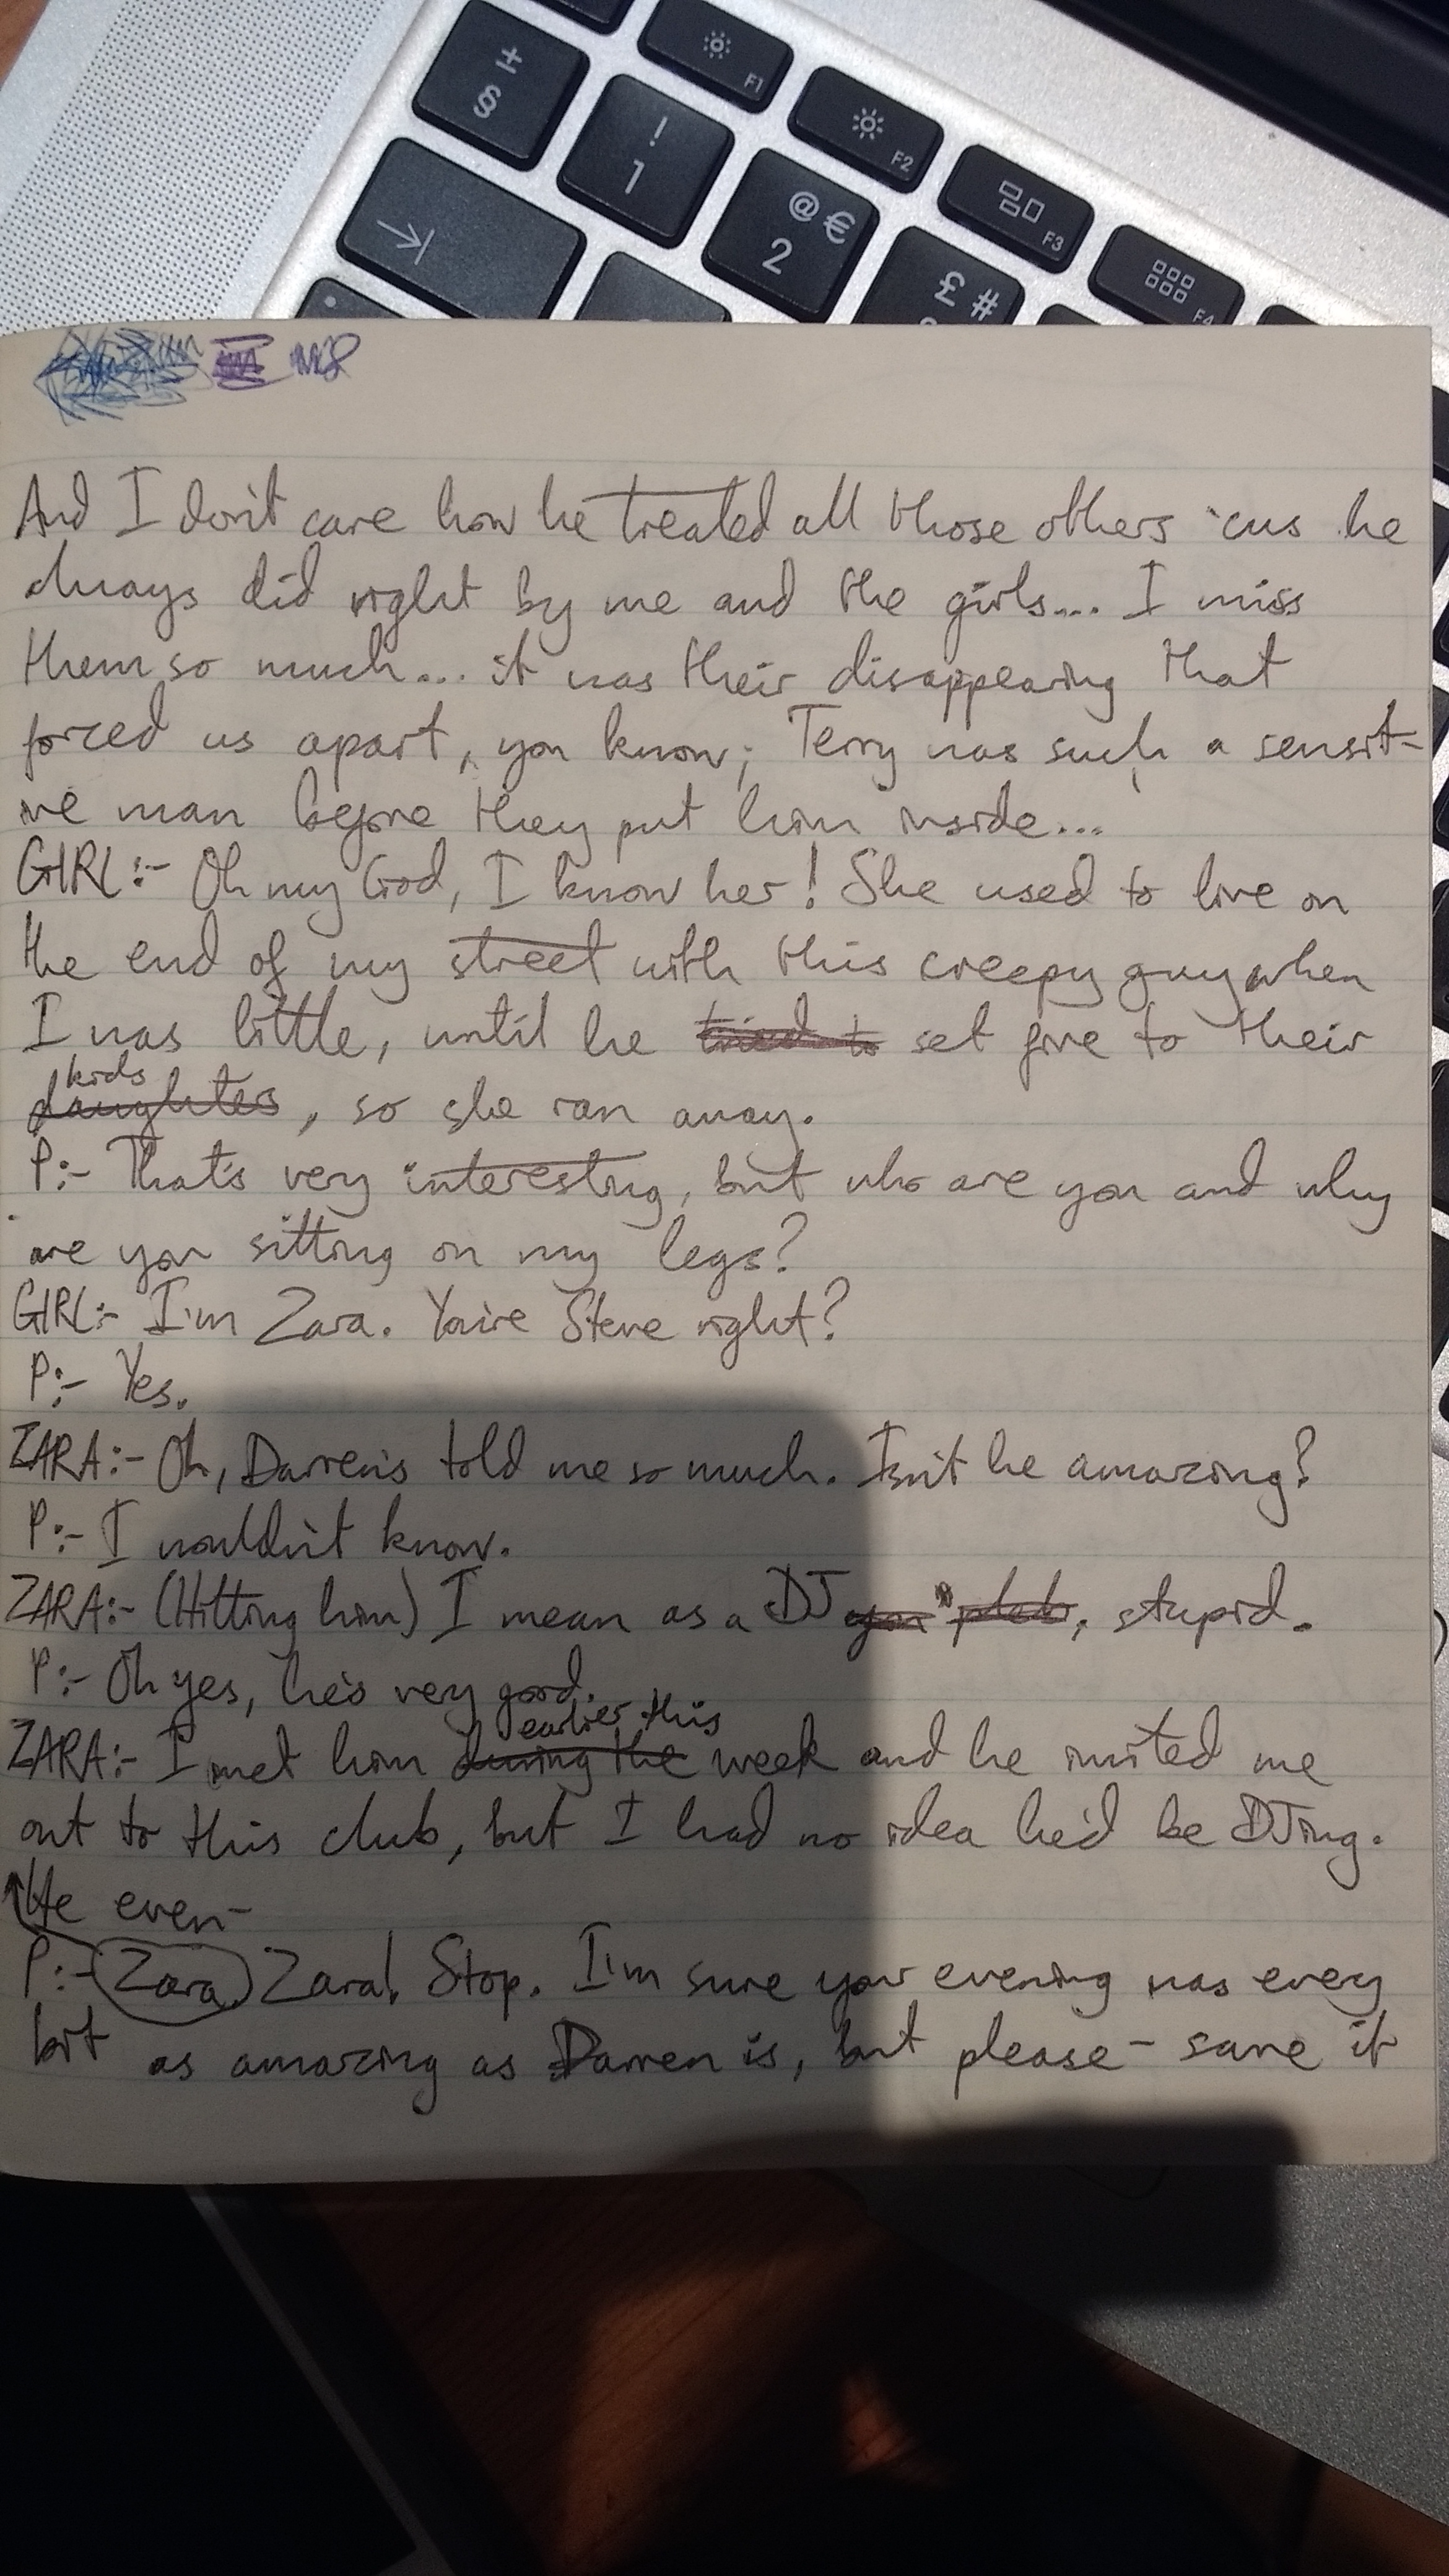 ±
§
!
1
F1
F2
@ €
2
F3
£ #
F4
And I don't care how he treated all those others 'cus he
always did right by me and the girls... I miss
them so much... it was their disappearing that
forced us apart, you know; Terry was such a sensit-
ive man before they put him inside...
GIRL:- Oh my God, I know her! She used to live on
the end of my street with this creepy guy when
I was little, until he tried to set fire to their
kids
daughters, so she ran away.
P:- That's very interesting, but who are you and why
are you sitting on my legs?
GIRL:- I'm Zara. You're Steve right?
P:- Yes.
ZARA:- Oh, Darren's told me so much. Isn't he amazing?
P:- I wouldn't know.
ZARA:- (Hitting him) I mean as a DJ you pleb, stupid.
P:- Oh yes, he's very good.
earlier this
ZARA:- I met him during the week and he invited me
out to this club, but I had no idea he'd be DJing.
He even-
P:- Zara. Zara! Stop. I'm sure your evening was every
bit as amazing as Darren is, but please - save it